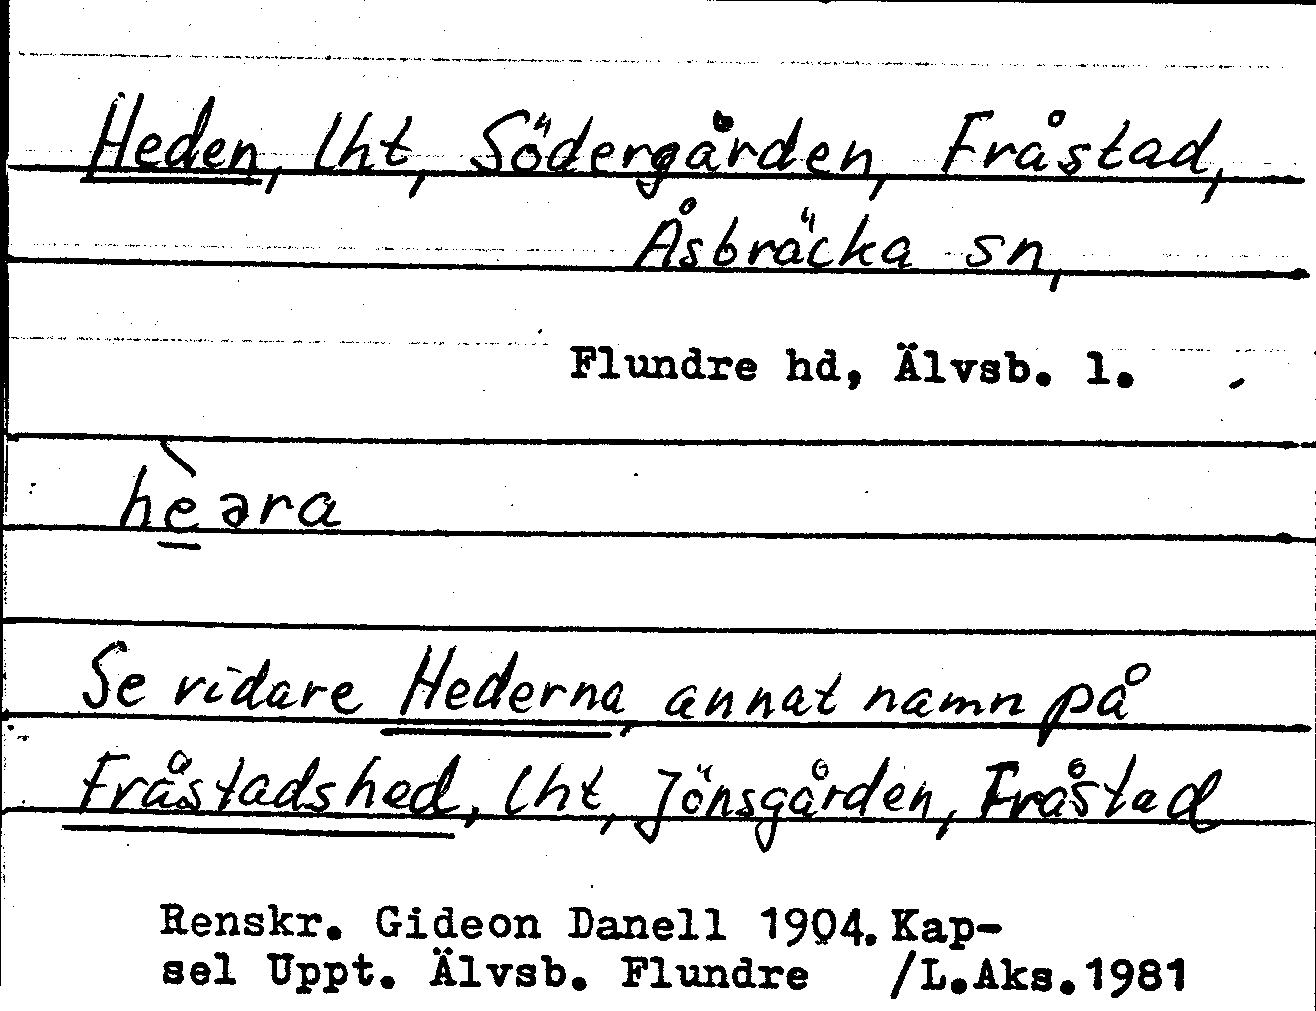 Heden, lht, Södergården, Fråstad,
Åsbräcka sn,
Flundre hd, Älvsb. l.
hèəra
Se vidare Hederna, annat namn på
Fråstadshed, lht, Jönsgården, Fråstad
Renskr. Gideon Danell 1904. Kap-
sel Uppt. Älvsb. Flundre /L.Aks.1981